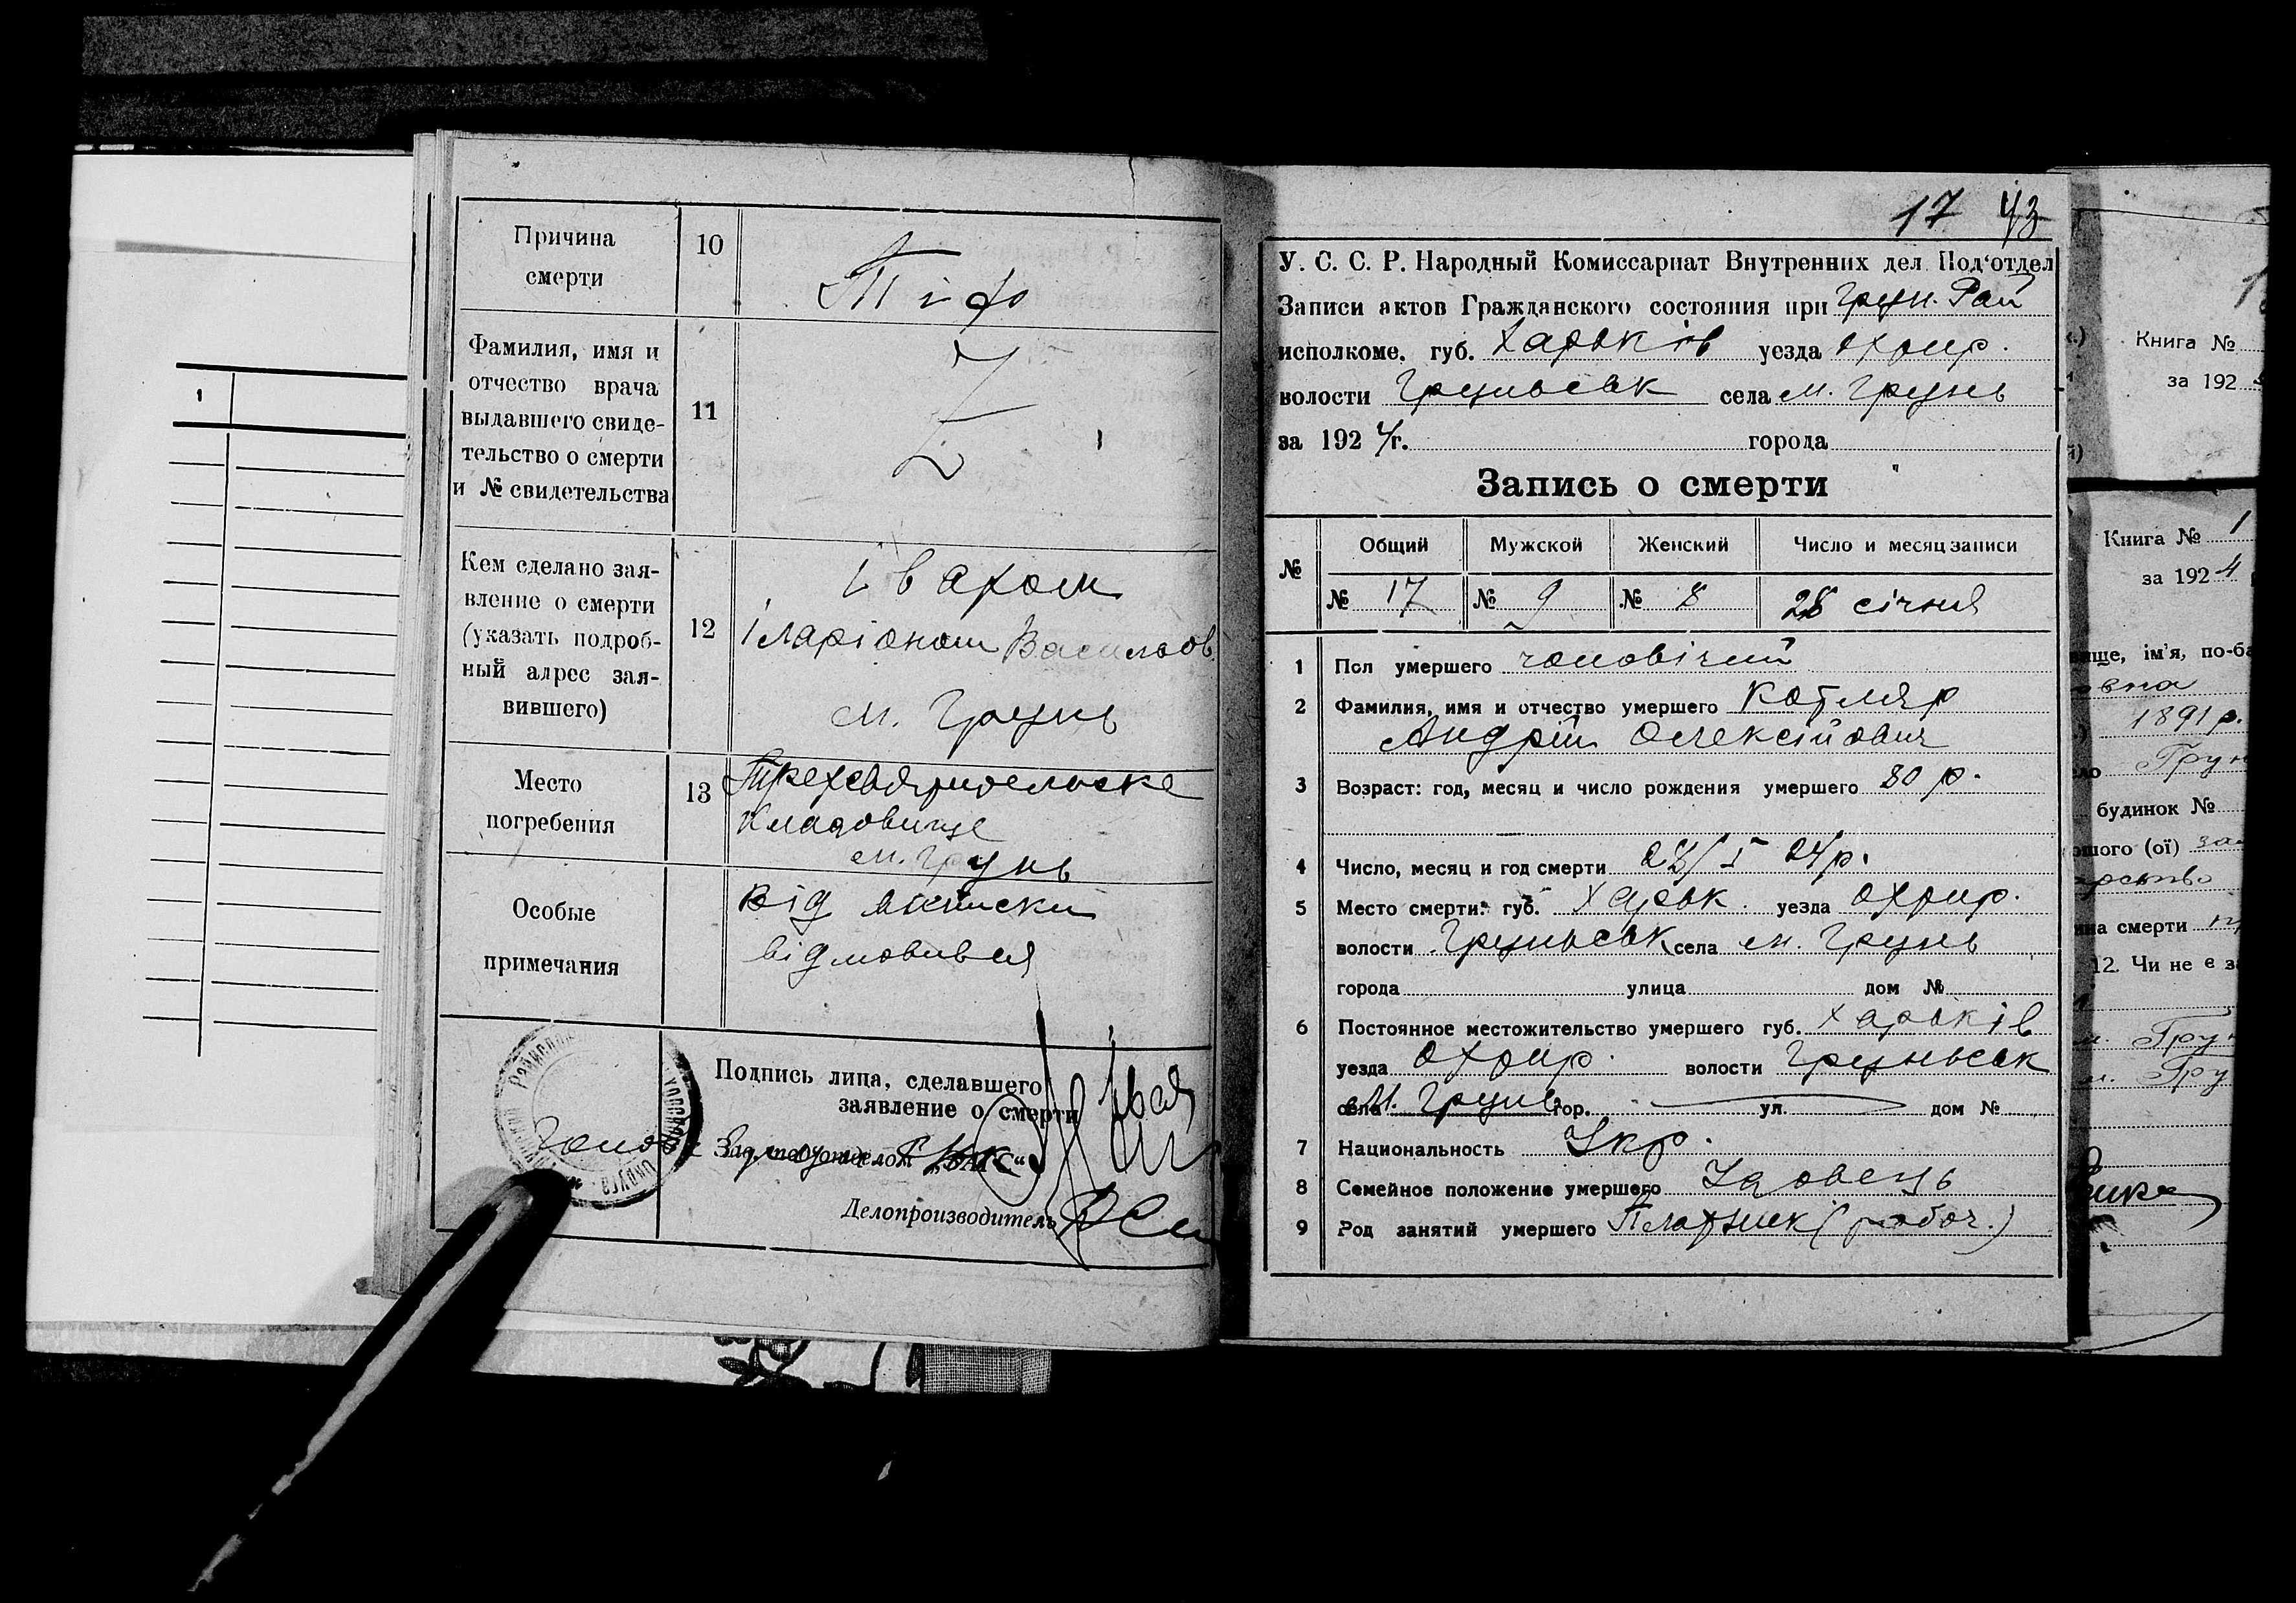 1
Причина
смерти
10
Тіф
Фамилия, имя и
отчество врача
выдавшего свиде-
тельство о смерти
и № свидетельства
11
Кем сделано зая-
вление о смерти
(указать подроб-
ный адрес зая-
вившего)
12
Івахом
Іларіоном Васильов.
м. Грунь
Место
погребения
13
Трехсвятительске
кладовище
м. Грунь
Особые
примечания
від
відмовився
Подпись лица, сделавшего
заявление о смерти
Делопроизводитель
17 43
У. С. С. Р. Народный Комиссариат Внутренних дел Под'отдел
Записи актов Гражданского состояния при Грун. Рай
исполкоме. губ. Харьків уезда Охтир.
волости Груньськ села м. Грунь
за 1924г. города
Запись о смерти
№ Общий Мужской Женский Число и месяц записи
№ 17 № 9 № 8 28 січня
1 Пол умершего чоловічий
2 Фамилия, имя и отчество умершего Котляр
Андрій Олексійович
3 Возраст: год, месяц и число рождения умершего 80 р.
4 Число, месяц и год смерти /I 24 р.
5 Место смерти: губ. Харьк. уезда Охтир.
волости Груньськ села м. Грунь
города улица дом №
6 Постоянное местожительство умершего губ. Харьків
уезда Охтир. волости Груньськ
села м. Грунь гор. ул. дом №
7 Национальность Укр.
8 Семейное положение умершего Удовець
9 Род занятий умершего Плотник (робоч.)
Книга №
за 192
Книга № 1
за 1924
ім'я, по-ба
1891 р.
Грун
будинок №
смерти
12. Чи не є з
м. Грун
м. Гру